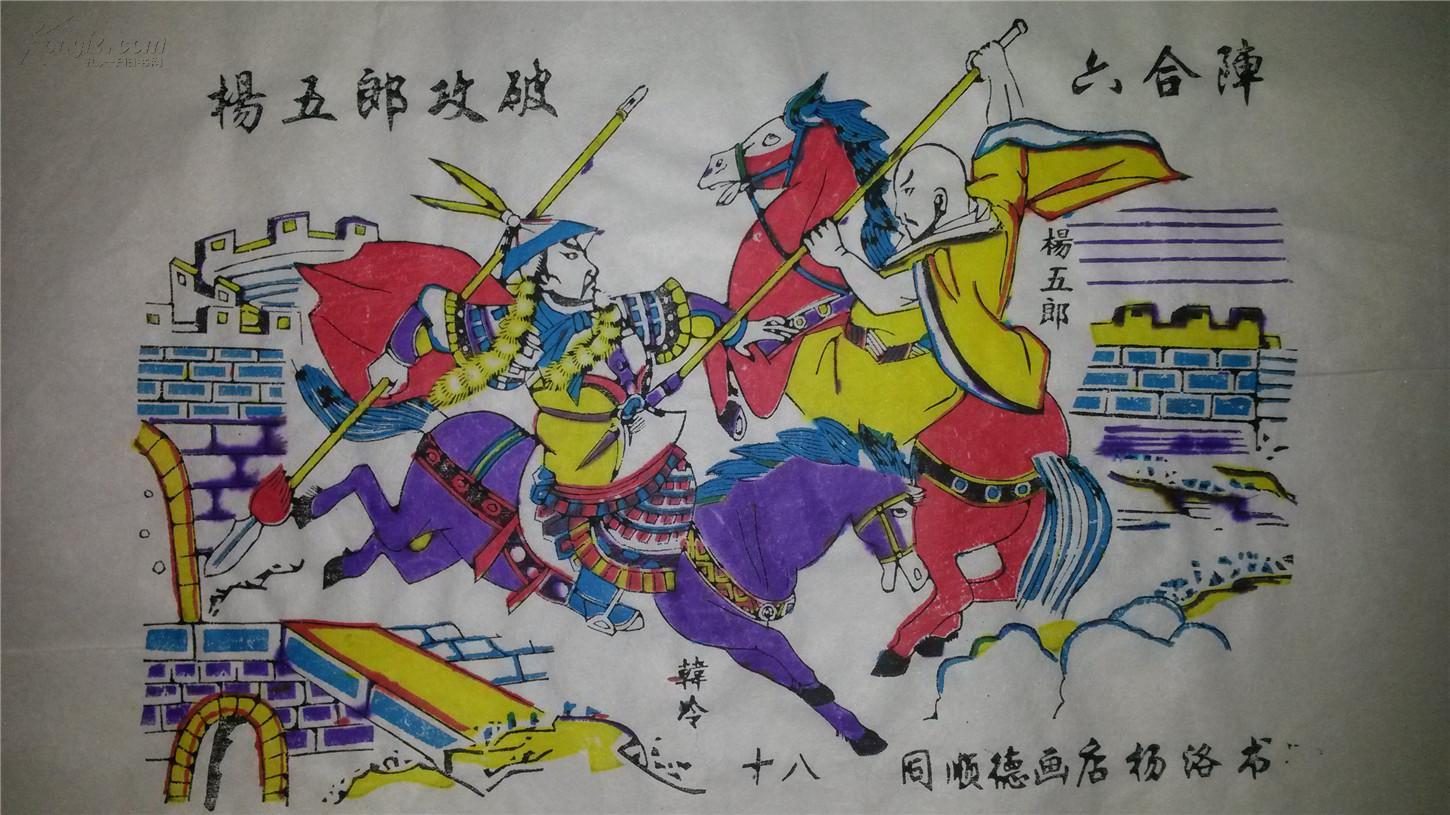 楊五郎攻破
六合陣
楊五郎
韓冷
十八
同顺德画店杨洛书